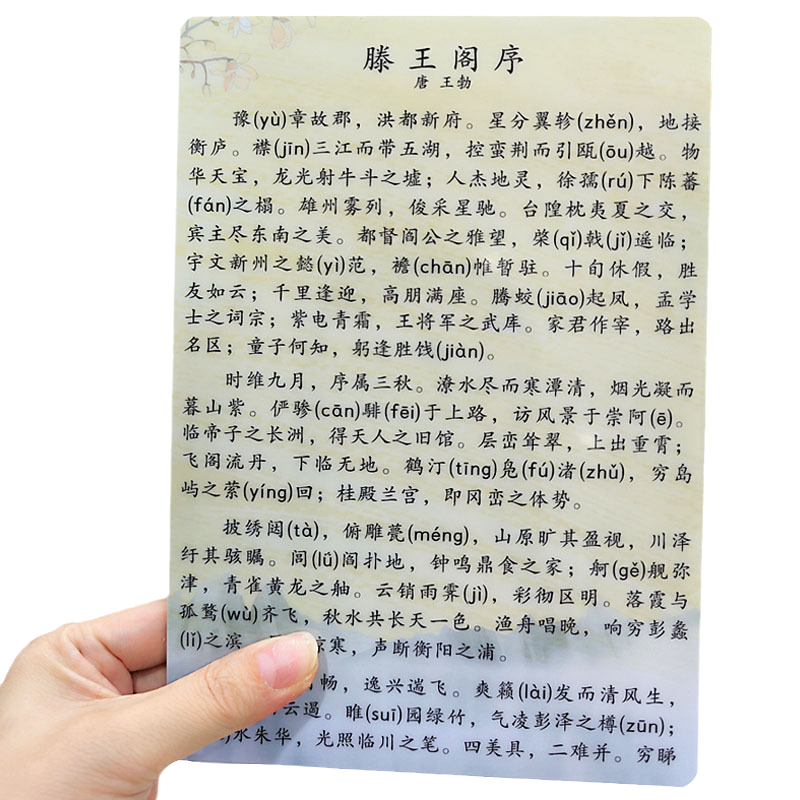 滕王阁序
唐 王勃
豫(yù)章故郡，洪都新府。星分翼轸(zhěn)，地接
衡庐。襟(jīn)三江而带五湖，控蛮荆而引瓯(ōu)越。物
华天宝，龙光射牛斗之墟；人杰地灵，徐孺(rú)下陈蕃
(fán)之榻。雄州雾列，俊采星驰。台隍枕夷夏之交，
宾主尽东南之美。都督阎公之雅望，棨(qǐ)戟(jǐ)遥临；
宇文新州之懿(yì)范，襜(chān)帷暂驻。十旬休假，胜
友如云；千里逢迎，高朋满座。腾蛟(jiāo)起凤，孟学
士之词宗；紫电青霜，王将军之武库。家君作宰，路出
名区；童子何知，躬逢胜饯(jiàn)。
时维九月，序属三秋。潦水尽而寒潭清，烟光凝而
暮山紫。俨骖(cān)騑(fēi)于上路，访风景于崇阿(ē)。
临帝子之长洲，得天人之旧馆。层峦耸翠，上出重霄；
飞阁流丹，下临无地。鹤汀(tīng)凫(fú)渚(zhǔ)，穷岛
屿之萦(yíng)回；桂殿兰宫，即冈峦之体势。
披绣闼(tà)，俯雕甍(méng)，山原旷其盈视，川泽
纡其骇瞩。闾(lǘ)阎扑地，钟鸣鼎食之家；舸(gě)舰弥
津，青雀黄龙之舳。云销雨霁(jì)，彩彻区明。落霞与
孤鹜(wù)齐飞，秋水共长天一色。渔舟唱晚，响穷彭蠡
(lǐ)之滨，寒，声断衡阳之浦。
畅，逸兴遄飞。爽籁(lài)发而清风生，
云遏。睢(suī)园绿竹，气凌彭泽之樽(zūn)；
水朱华，光照临川之笔。四美具，二难并。穷睇